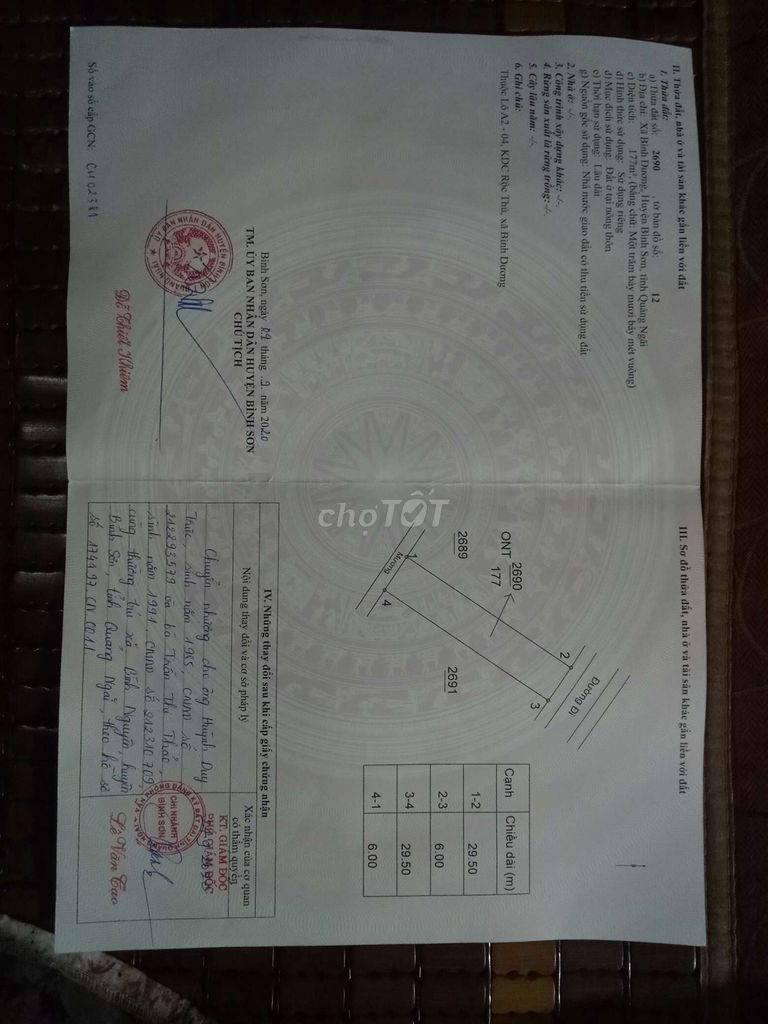 II. Thửa đất, nhà ở và tài sản khác gắn liền với đất
1. Thửa đất:
a) Thửa đất số: 2690 , tờ bản đồ số: 12
b) Địa chỉ: Xã Bình Dương, Huyện Bình Sơn, tỉnh Quảng Ngãi
c) Diện tích: 177m², (bằng chữ: Một trăm bảy mươi bảy mét vuông)
d) Hình thức sử dụng: Sử dụng riêng
đ) Mục đích sử dụng: Đất ở tại nông thôn
e) Thời hạn sử dụng: Lâu dài
g) Nguồn gốc sử dụng: Nhà nước giao đất có thu tiền sử dụng đất
2. Nhà ở: -/-.
3. Công trình xây dựng khác: -/-.
4. Rừng sản xuất là rừng trồng: -/-.
5. Cây lâu năm: -/-.
6. Ghi chú:
Thuộc Lô A2 - 04, KDC Rộc Thú, xã Bình Dương
Bình Sơn, ngày tháng 9 năm 2020
TM. ỦY BAN NHÂN DÂN HUYỆN BÌNH SƠN
CHỦ TỊCH
ỦY BAN NHÂN DÂN HUYỆN BÌNH SƠN
Đỗ Thiết Khiêm
Số vào sổ cấp GCN: CH02381
III. Sơ đồ thửa đất, nhà ở và tài sản khác gắn liền với đất
ONT 2690
177
2689
2691
Mương
Đường đi
1
2
3
4
Cạnh Chiều dài (m)
1-2 29.50
2-3 6.00
3-4 29.50
4-1 6.00
IV. Những thay đổi sau khi cấp giấy chứng nhận
Nội dung thay đổi và cơ sở pháp lý
Xác nhận của cơ quan
có thẩm quyền
Chuyển nhượng cho ông Huỳnh Duy
Thức, sinh năm 1985, CMND số
212293579 và bà Trần Thị Thảo,
sinh năm 1991, CMND số 212310709
cùng thường trú xã Bình Nguyên, huyện
Bình Sơn, tỉnh Quảng Ngãi, theo hồ sơ
số 174497.CN.001.
KT. GIÁM ĐỐC
PHÓ GIÁM ĐỐC
VĂN PHÒNG ĐĂNG KÝ ĐẤT ĐAI
CHI NHÁNH
BÌNH SƠN
Lê Văn Tao
chợTỐT